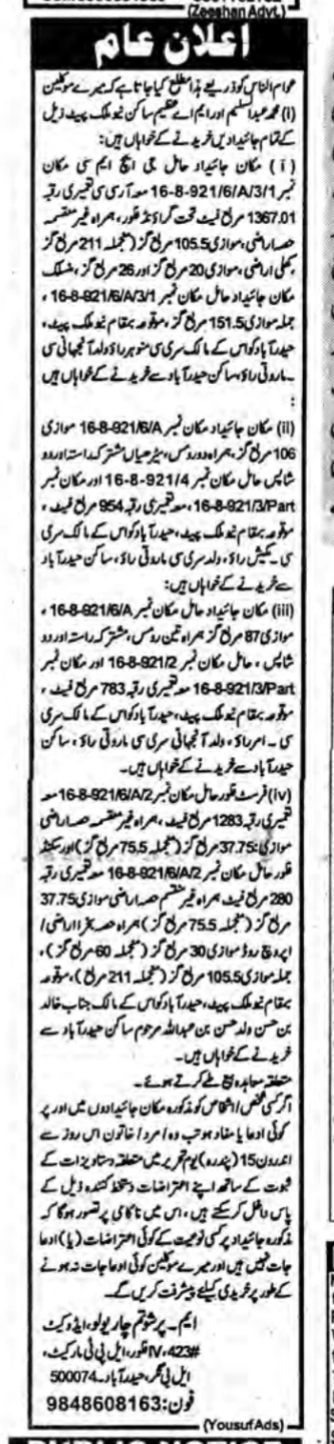 (Zeeshan Advt.)
اعلان عام
عوام الناس کو ذریعے ہذا مطلع کیا جاتا ہے کہ میرے موکلین
(i) محمد عبدالسلیم اور ایم اے عظیم ساکن نیو ملک پیٹ ذیل
کے تمام جائیدادیں خریدنے کے خواہاں ہیں:
(i) مکان جائیداد حامل جی ایچ ایم سی مکان
نمبر 16-8-921/6/A/3/1 معہ آر سی سی تعمیری رقبہ
1367.01 مربع فیٹ تحت گراؤنڈ فلور، ہمراہ غیر منقسمہ
حصہ اراضی، موازی 105.5 مربع گز (منجملہ 211 مربع گز
کھلی اراضی، موازی 20 مربع گز اور 26 مربع گز، منسلک
مکان جائیداد حامل مکان نمبر 16-8-921/6/A/3/1،
جملہ موازی 151.5 مربع گز، موقوعہ بمقام نیو ملک پیٹ،
حیدرآباد کو اس کے مالک سری سی منوہر راؤ ولد آنجہانی سی
۔ ماروتی راؤ، ساکن حیدرآباد سے خریدنے کے خواہاں ہیں
:
(ii) مکان جائیداد مکان نمبر 16-8-921/6/A موازی
106 مربع گز، ہمراہ دو رومس، سیڑھیاں مشترکہ راستہ اور دو
شاپس حامل مکان نمبر 16-8-921/4 اور مکان نمبر
16-8-921/3/Part، معہ تعمیری رقبہ 954 مربع فیٹ،
موقوعہ بمقام نیو ملک پیٹ، حیدرآباد کو اس کے مالک سری
سی۔ گنیش راؤ، ولد سری سی ماروتی راؤ، ساکن حیدرآباد
سے خریدنے کے خواہاں ہیں:
(iii) مکان جائیداد حامل مکان نمبر 16-8-921/6/A،
موازی 87 مربع گز ہمراہ تین رومس، مشترکہ راستہ اور دو
شاپس، حامل مکان نمبر 16-8-921/2 اور مکان نمبر
16-8-921/3/Part معہ تعمیری رقبہ 783 مربع فیٹ،
موقوعہ بمقام نیو ملک پیٹ، حیدرآباد کو اس کے مالک سری
سی۔ امر راؤ، ولد آنجہانی سری سی ماروتی راؤ، ساکن
حیدرآباد سے خریدنے کے خواہاں ہیں۔
(iv) فرسٹ فلور حامل مکان نمبر 16-8-921/6/A/2 معہ
تعمیری رقبہ 1283 مربع فیٹ، ہمراہ غیر منقسمہ حصہ اراضی
موازی 37.75 مربع گز (منجملہ 75.5 مربع گز) اور سکنڈ
فلور حامل مکان نمبر 16-8-921/6/A/2 معہ تعمیری رقبہ
280 مربع فیٹ ہمراہ غیر منقسم حصہ اراضی موازی 37.75
مربع گز (منجملہ 75.5 مربع گز) ہمراہ حصہ اراضی/
اپروچ روڈ موازی 30 مربع گز (منجملہ 60 مربع گز)،
جملہ موازی 105.5 مربع گز (منجملہ 211 مربع)، موقوعہ
بمقام نیو ملک پیٹ، حیدرآباد کو اس کے مالک جناب خالد
بن حسن ولد حسن بن عبداللہ مرحوم ساکن حیدرآباد سے
خریدنے کے خواہاں ہیں۔
متعلقہ معاہدہ بیع طے کرتے ہوئے۔
اگر کسی شخص/اشخاص کو مذکورہ مکان جائیدادوں میں اور پر
کوئی ادعا یا مفاد ہو تب وہ/مرد/خاتون اس روز سے
اندرون 15 (پندرہ) یوم تحریر میں متعلقہ دستاویزات کے
ثبوت کے ساتھ اپنے اعتراضات دستخط کنندہ ذیل کے
پاس داخل کر سکتے ہیں، اس میں ناکامی پر تصور ہوگا کہ
مذکورہ جائیداد پر کسی نوعیت کے کوئی اعتراضات (یا) ادعا
جات نہیں ہیں اور میرے موکلین کوئی ادعا جات نہ ہونے
کے طور پر خریدی کیلئے پیشرفت کریں گے۔
ایم۔ پرشوتم چاریولو، ایڈوکیٹ
#423، IV فلور، ایل پی ٹی مارکیٹ،
ایل بی نگر، حیدرآباد۔ 500074
فون: 9848608163
(YousufAds)